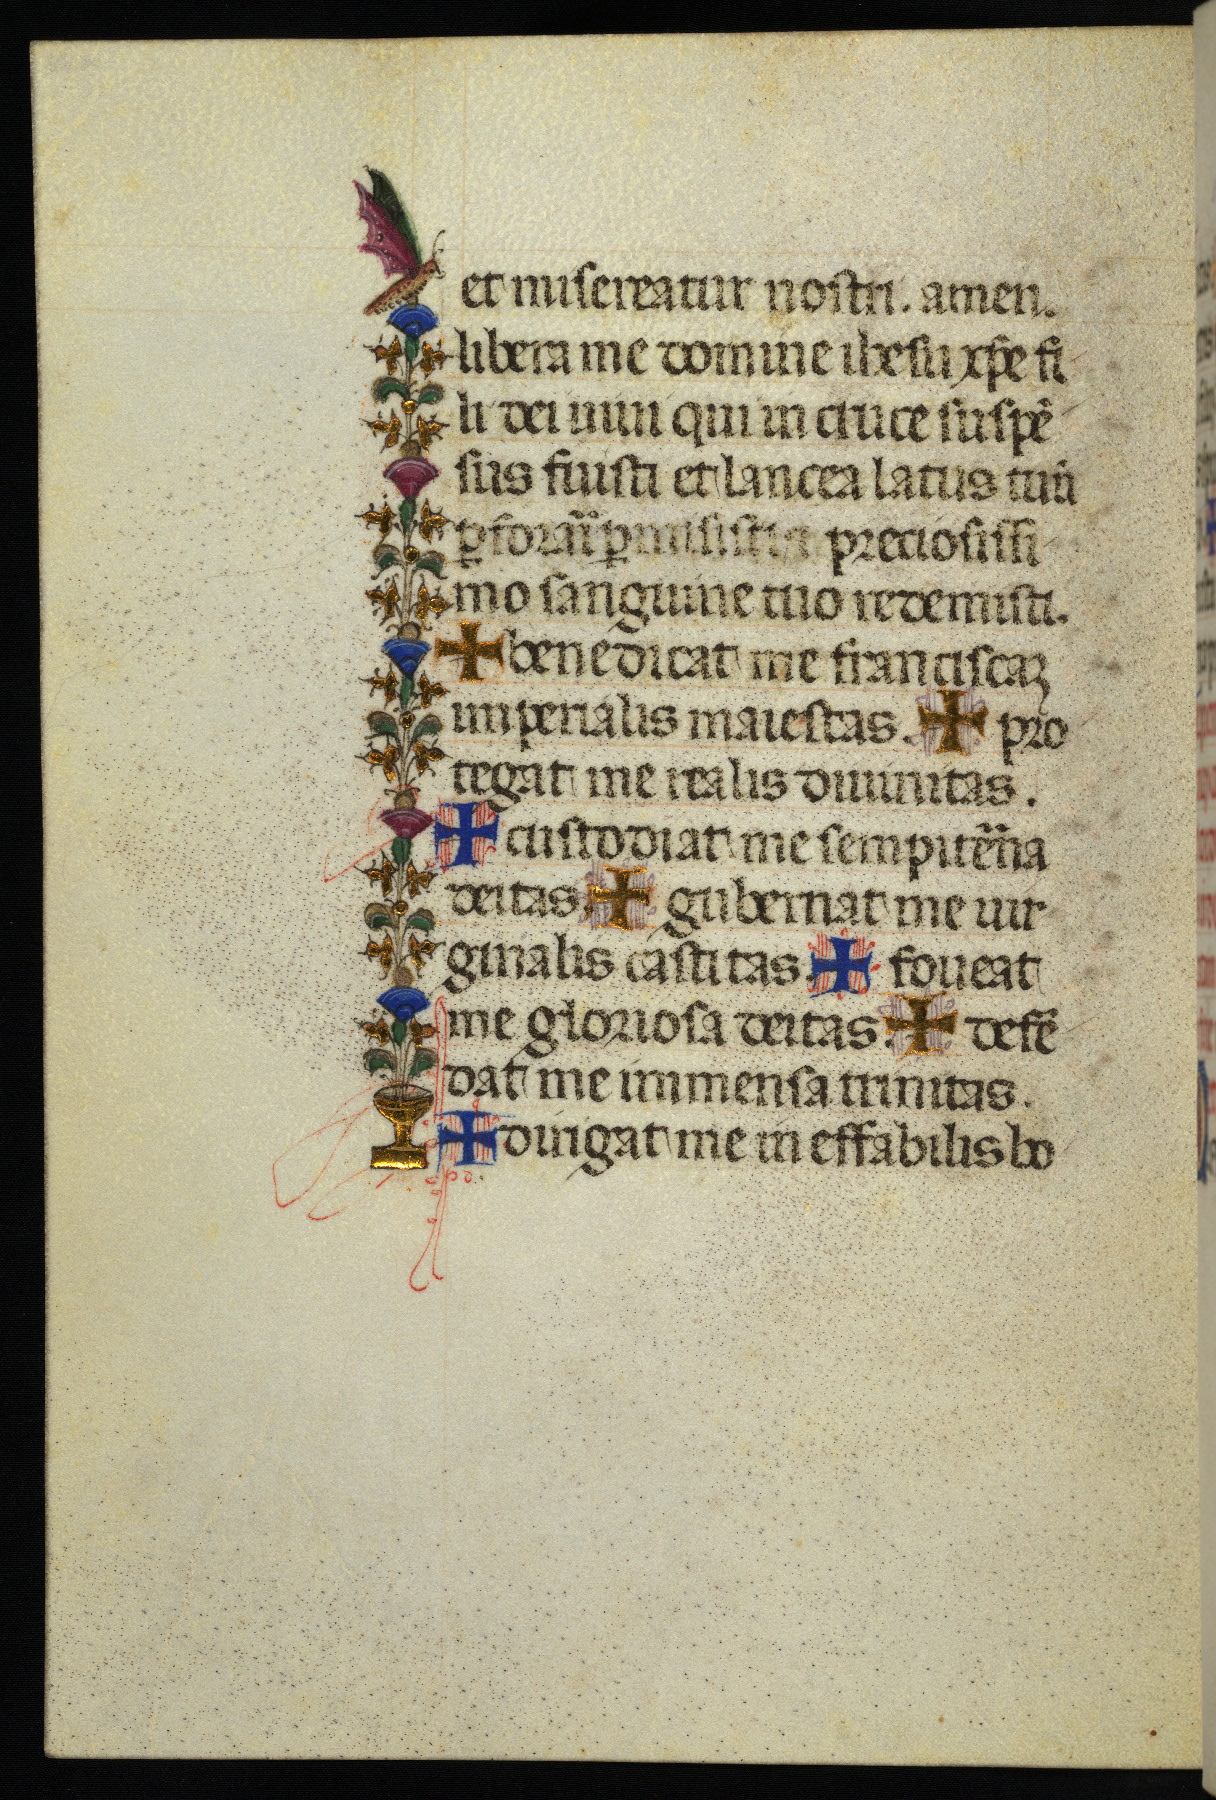 et misereatur nostri. amen.
libera me domine ihesu xp̄e fi
li dei uiui qui in cruce suspē
sus fuisti et lancea latus tuū
ꝑforari ꝑmisisti preciosissi
mo sanguine tuo redemisti.
✠ benedicat me franciscaꝫ
imperialis maiestas. ✠ pro
tegat me realis diuinitas.
✠ custodiat me sempitē̄na
deitas. ✠ gubernat me uir
ginalis castitas. ✠ foueat
me gloriosa deitas. ✠ defē
dat me immensa trinitas.
✠ dirigat me in effabilis bo